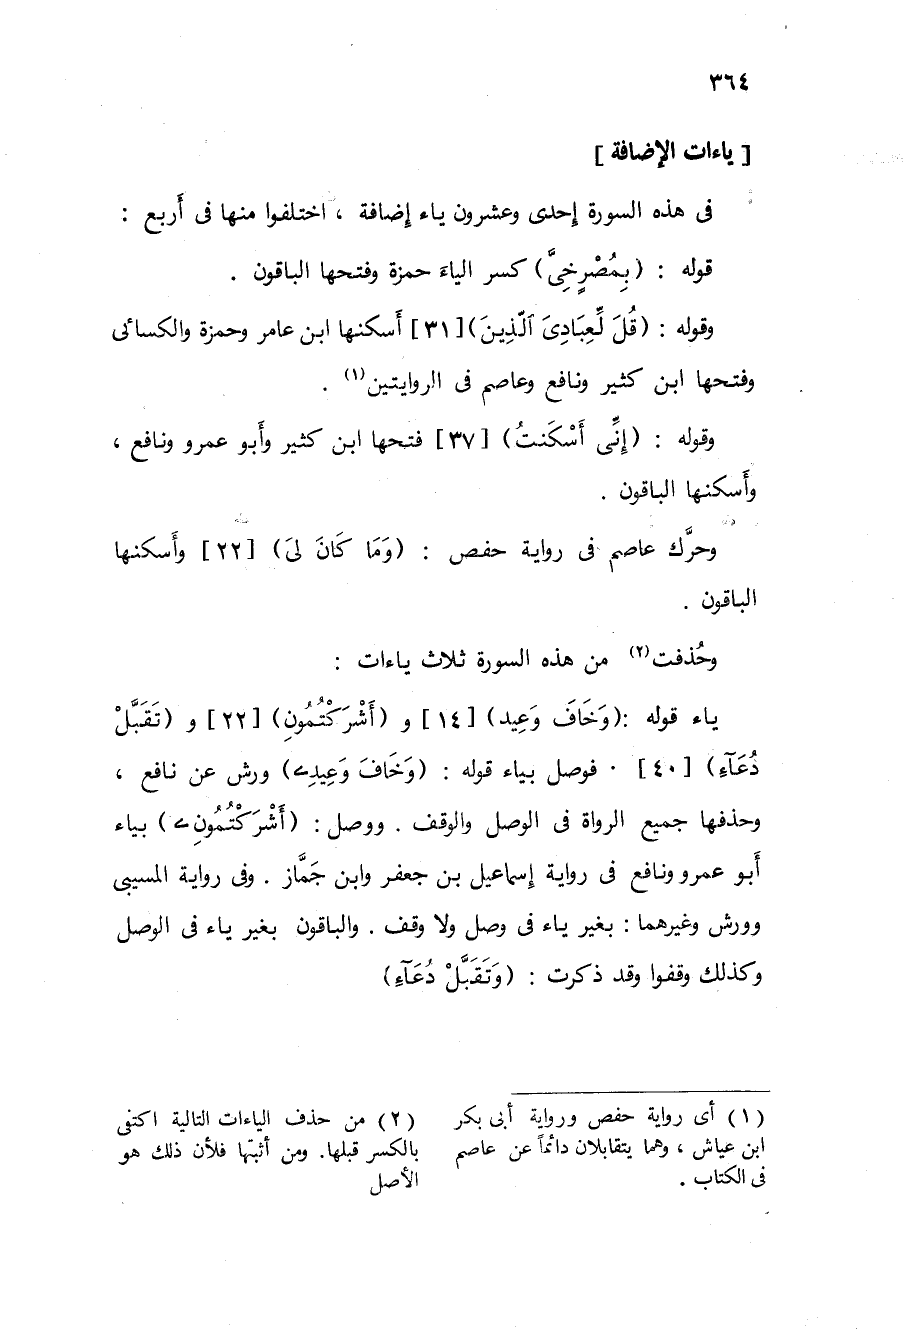 ٣٦٤
[ ياءات الإضافة ]
فى هذه السورة إحدى وعشرون ياء إضافة ، اختلفوا منها فى أربع :
قوله : (بِمُصْرِخِىَّ) كسر الياءَ حمزة وفتحها الباقون .
وقوله : (قُلْ لِّعِبَادِىَ ٱلَّذِينَ)[٣١] أَسكنها ابن عامر وحمزة والكسائى
وفتحها ابن كثير ونافع وعاصم فى الروايتين(١) .
وقوله : (إِنِّى أَسْكَنتُ) [٣٧] فتحها ابن كثير وأَبو عمرو ونافع ،
وأَسكنها الباقون .
وحرَّك عاصم فى رواية حفص : (وَمَا كَانَ لِىَ) [٢٢] وأَسكنها
الباقون .
وحُذفت(٢) من هذه السورة ثلاث ياءات :
ياء قوله :(وَخَافَ وَعِيدِ) [١٤] و (أَشْرَكْتُمُونِ) [٢٢] و (تَقَبَّلْ
دُعَآءِ) [٤٠] . فوصل بياء قوله : (وَخَافَ وَعِيدِے) ورش عن نافع ،
وحذفها جميع الرواة فى الوصل والوقف . ووصل : (أَشْرَكْتُمُونِے) بياء
أَبو عمرو ونافع فى رواية إسماعيل بن جعفر وابن جَمَّاز . وفى رواية المسيبى
وورش وغيرهما : بغير ياء فى وصل ولا وقف . والباقون بغير ياء فى الوصل
وكذلك وقفوا وقد ذكرت : (وَتَقَبَّلْ دُعَآءِ)
(١) أى رواية حفص ورواية أبى بكر
ابن عياش ، وهما يتقابلان دائماً عن عاصم
فى الكتاب .
(٢) من حذف الياءات التالية اكتفى
بالكسر قبلها. ومن أثبتها فلأن ذلك هو
الأصل